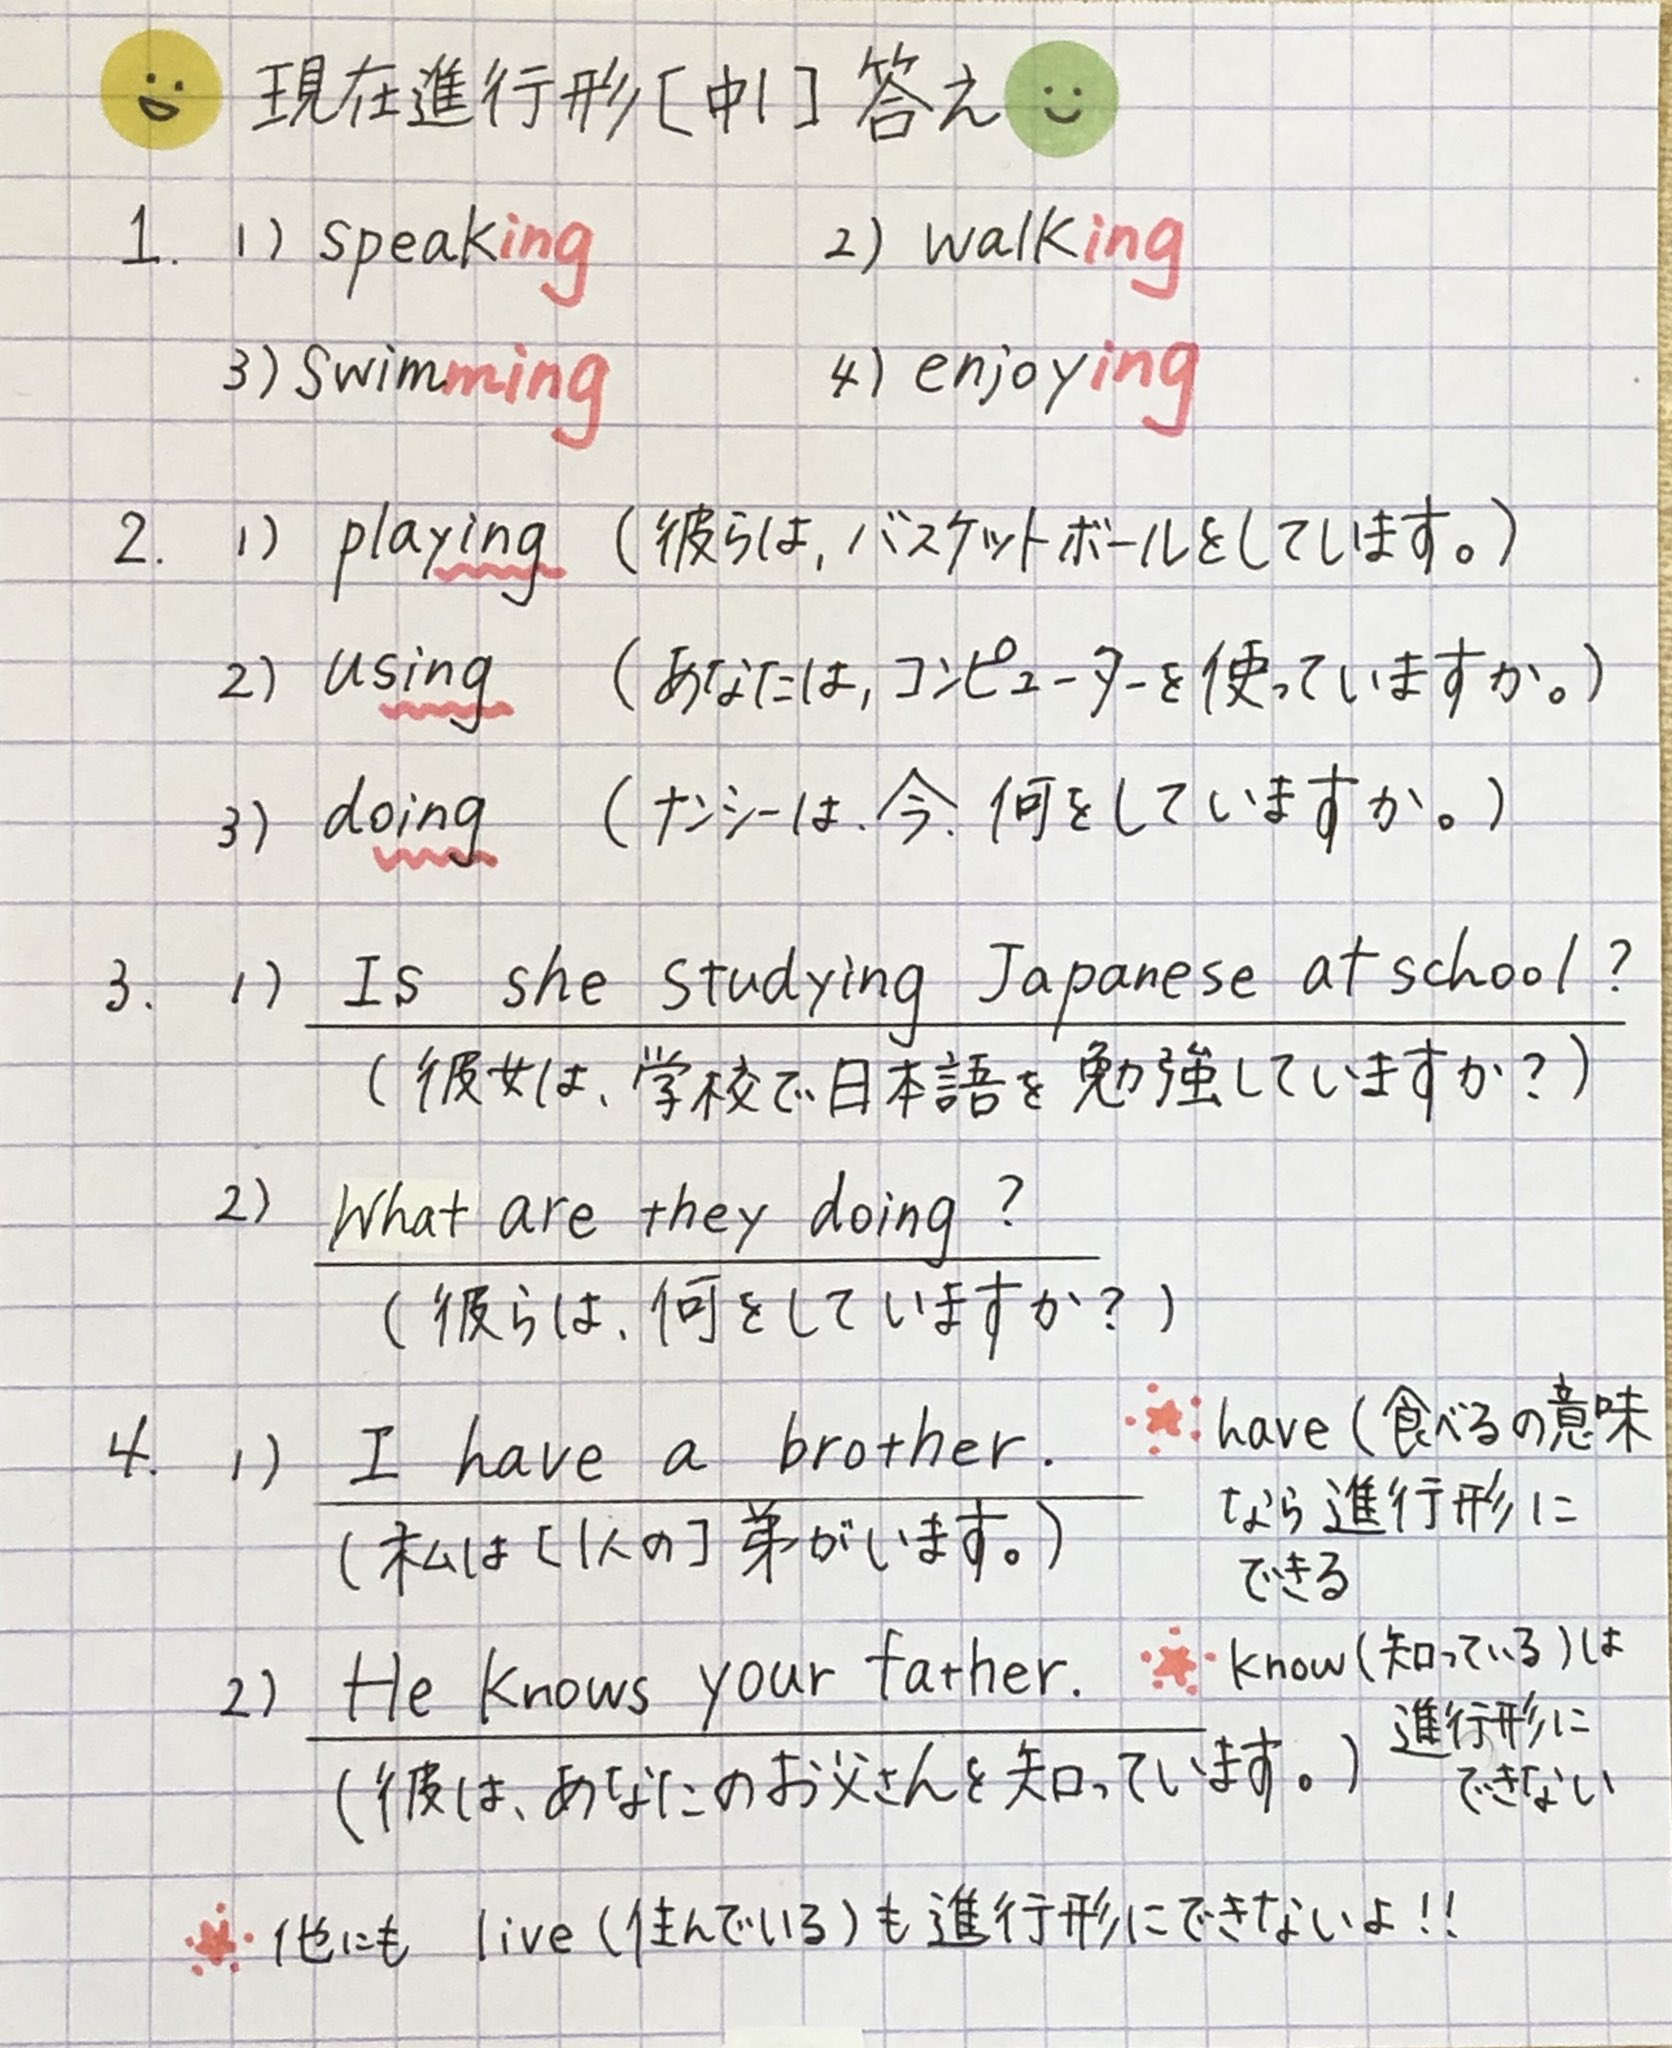 現在進行形[中1]答え
1. 1) speaking 2) walking
3) swimming 4) enjoying
2. 1) playing (彼らは,バスケットボールをしています。)
2) using (あなたは,コンピューターを使っていますか。)
3) doing (ナンシーは、今、何をしていますか。)
3. 1) Is she studying Japanese at school?
(彼女は、学校で日本語を勉強していますか?)
2) What are they doing?
(彼らは、何をしていますか?)
4. 1) I have a brother.
(私は[1人の]弟がいます。)
have(食べるの意味
なら進行形に
できる
2) He knows your father.
(彼は、あなたのお父さんを知っています。)
know(知っている)は
進行形に
できない
他にも live(住んでいる)も進行形にできないよ!!